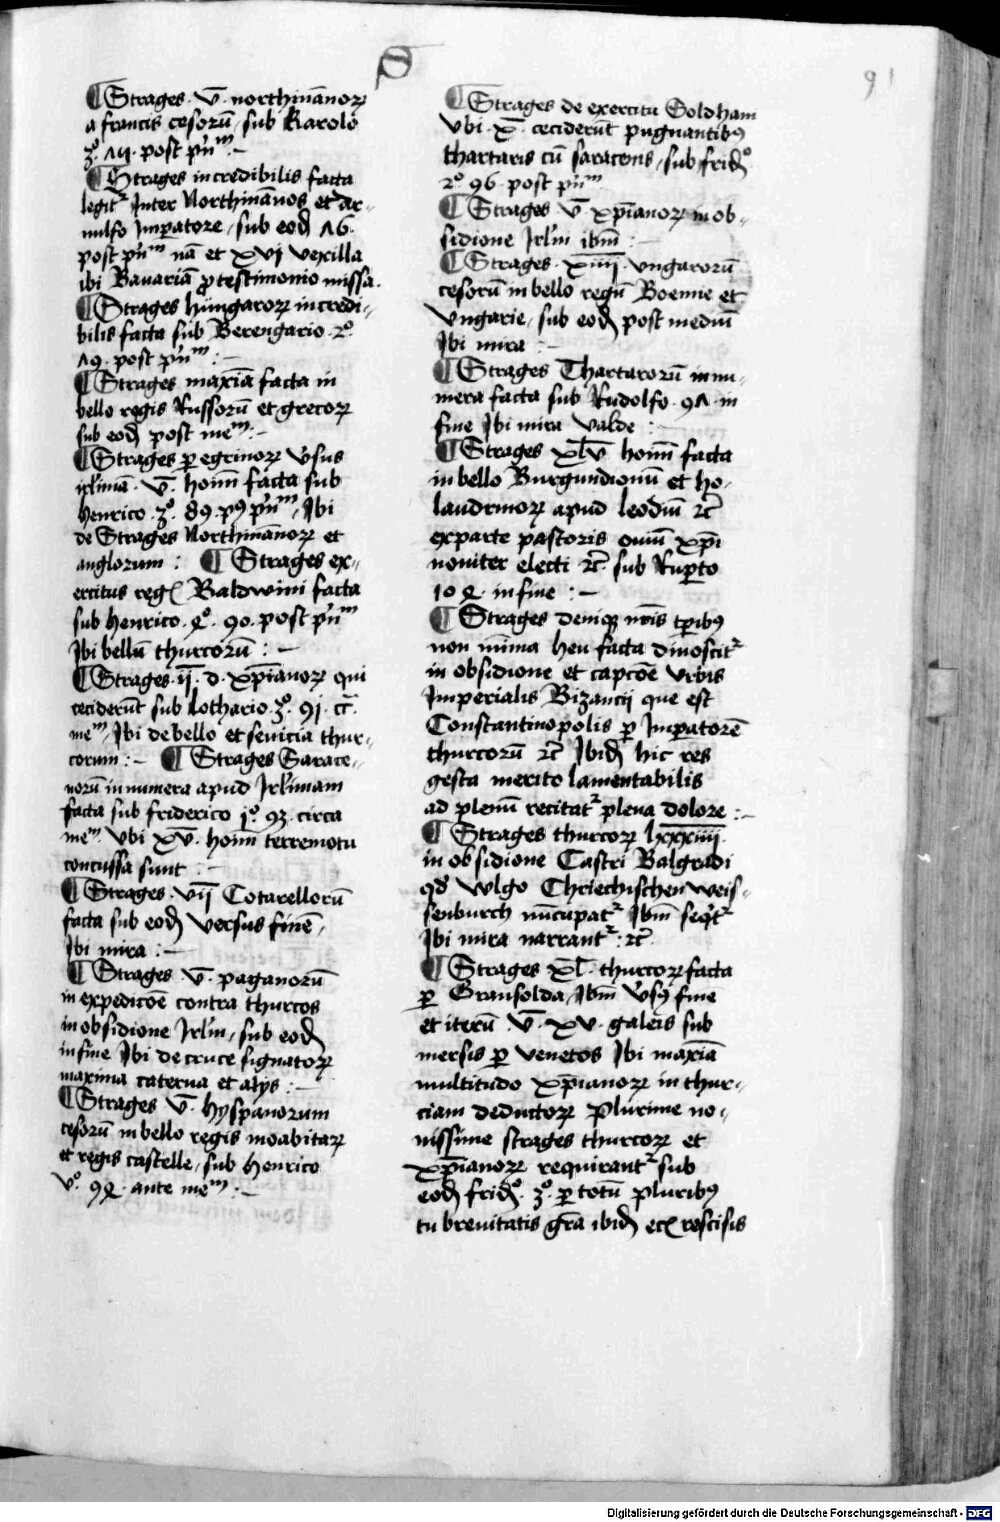 S
91
¶ Strages · v̄ · northmānoꝝ
a francis cesorū / sub Karolo
3º · ʌ4 · post pn̄ᵐ : ~
¶ Strages incredibilis facta
legitᷣ Inter Northmānos et Ar-
nulfo Imꝑatore / sub eod̄ ʌ6 ·
post pn̄ᵐ nā et xvj vexilla
ibi Bauariā ꝓ testimonio missa ·
¶ Strages hūngaroꝝ incredi-
bilis facta sub Berengario · 2º ·
ʌ9 · post pn̄ᵐ : ~
¶ Strages maxīa facta in
bello regis Russorū et grecoꝝ
sub eod̄ post meᵐ : ~
¶ Strages ꝑegrinoꝝ v̓sus
irl̄imā · v̄ · hoīm facta sub
henrico · 3º · 89 · pꝰ pn̄ᵐ / Ibi
de Strages Northmānoꝝ et
anglorum : ¶ Strages ex-
ercitus reḡ Baldwini facta
sub henrico · 4º · 90 · post pn̄ᵐ
Ibi bellū thurcorū : ~
¶ Strages · ij̄ · d · xp̄ianoꝝ qui
ceciderūt sub lothario · 3º · 91 · cr̄ ·
meᵐ / Ibi de bello et seuicia thur-
corum : ~ ¶ Strages Sarace-
norū innumera apud Irl̄imam
facta sub friderico 1º · 93 · circa
meᵐ · Vbi xv̄ · hoīm terremotu
concussa sunt : ~
¶ Strages · vij̄ Cotarellorū
facta sub eod̄ versus finē /
Ibi mira : ~
¶ Strages · v̄ · paganorū
in expedicōe contra thurcos
in obsidione Irl̄m / sub eod̄
in fine Ibi de cruce signatoꝝ
maxima caterua et alijs : ~
¶ Strages v̄ · hyspanorum
cesorū in bello regis moabitaꝝ
et regis castelle / sub henrico
vº · 94 · ante meᵐ : ~
¶ Strages de exercitu Soldham
Vbi · x̄ · ceciderūt pugnantibꝰ
thartaris cū saracenis / sub frid̄º
2º 96 · post pn̄ᵐ
¶ Strages v̄ · xp̄ianoꝝ in ob-
sidione Irl̄m ibm̄ : ~
¶ Strages · xiiij̄ · vngarorū
cesorū in bello regū Boemie et
Vngarie / sub eod̄ post mediū
Ibi mira : ~
¶ Strages Thartarorū innu-
mera facta sub Rudolfo · 9ʌ · in
fine Ibi mira valde : ~
¶ Strages xl̄v̄ hoīm facta
in bello Burgundionū et ho-
landrinoꝝ apud leodiū ⁊c̄
ex parte pastoris ouiū xp̄i
nouiter electi ⁊c̄ sub Ruꝑto
104 · in fine : ~
¶ Strages deniqꝫ nr̄is tꝑibꝰ
non mīma heu facta dinoscitᷣ
in obsidione et capcōe vrbis
Imperialis Bizancij que est
Constantinopolis ꝑ Imꝑatorē
thurcorū ⁊c̄ Ibid̄ hic res
gesta merito lamentabilis
ad plenū recitatᷣ plena dolore : ~
¶ Strages thurcoꝝ lxxxiiij̄
in obsidione Castri Balgradi
qd̓ wlgo Chriechischen weis-
senburch nūcupatᷣ Ibm̄ seqʹtᷣ
Ibi mira narrantᷣ : ⁊c̄
¶ Strages xl̄ · thurcoꝝ facta
ꝑ Gransolda / Ibm̄ v̓sꝰ finē
et iterū · v̄ · xv · galeis sub
mersis ꝑ venetos Ibi maxīa
multitudo xp̄ianoꝝ in thur-
ciam deductoꝝ Plurime no-
uissime strages thurcoꝝ et
xp̄ianoꝝ requirantᷣ sub
eod̄ frid̄º · 3º · ꝑ totū pluribꝰ
tn̄ breuitatis gr̄a ibid̄ ecꝭ rescisis
Digitalisierung gefördert durch die Deutsche Forschungsgemeinschaft - DFG